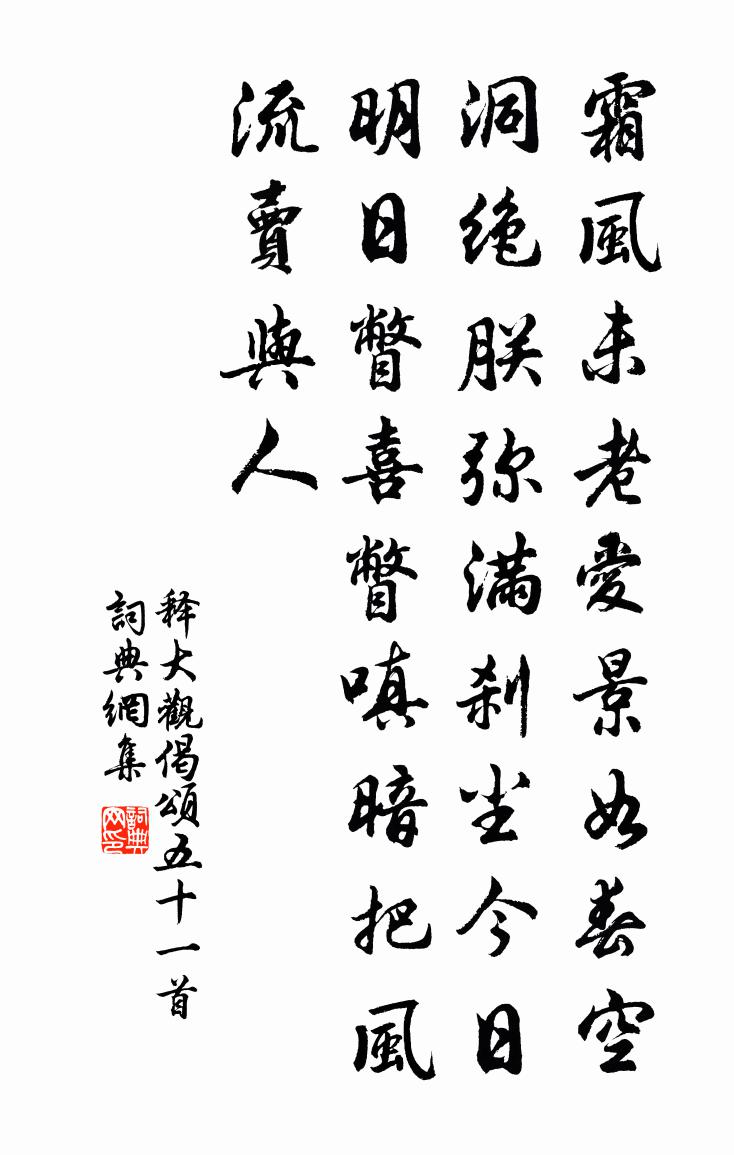 霜風未老愛景如春空
洞绝朕弥满刹坐今日
明日瞥喜瞥嗔暗把風
流賣與人
释大觀偈頌五十一首
詞典網集
詞典网印